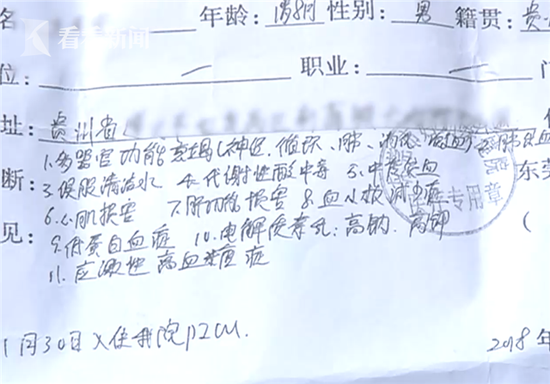 看看新闻
名 年龄：1岁8月 性别：男 籍贯：贵
位 职业： 门
址：贵州省
1.多器官功能衰竭（神经、循环、肺、消化、
断：3.误服清洁水 4.代谢性酸中毒 5.中度贫血 东
6.心肌损害 7.肝功能损害 8.血小板减少症 专用章
见：9.低蛋白血症 10.电解质紊乱：高钠、高钾 （
11.应激性高血糖症
1月30日入住我院PICU. 2018年